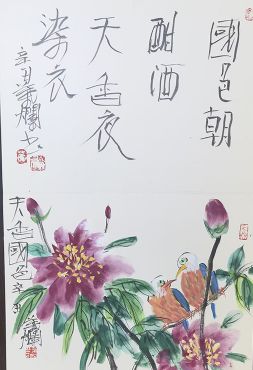 國色朝
酣酒
天香夜
染衣
辛丑
天香國色辛丑